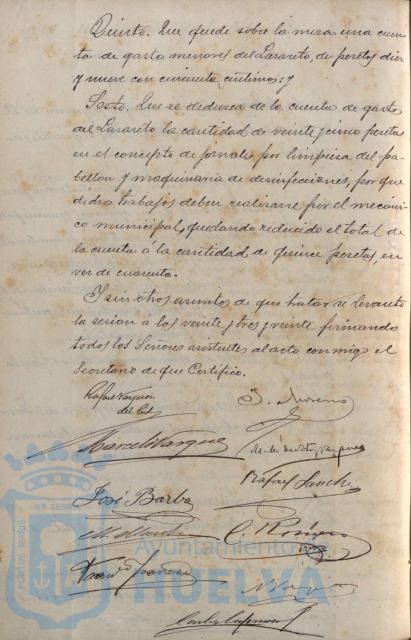 Quinto. Que quede sobre la mesa una cuen-
ta de gasto menores del Lazareto, de pesetas diez
y nueve con cincuenta centimos; y
Sesto. Que se deduzca de la cuenta de gasto
del Lazareto la cantidad de veinte y cinco pesetas
en el concepto de jornales por limpiesa del pa-
bellon y maquinaria de desinfecciones, por que
dicho trabajos deben realizarse por el mecani-
co municipal, quedando reducido el total de
la cuenta á la cantidad de quince pesetas, en
vez de cuarenta.
Y sin otros asuntos de que tratar se levanto
la sesion á las veinte y tres y veinte firmando
todos los Señores asistentes al acto conmigo el
Secretario de que Certifico.
Rafael Vazquez
del Cid
J. Moreno
Marcel Vazquez
Rafael Sanchez
José Barba
C. Romero
PORTUS MARIS
ET TERRE
Ayuntamiento
HUELVA